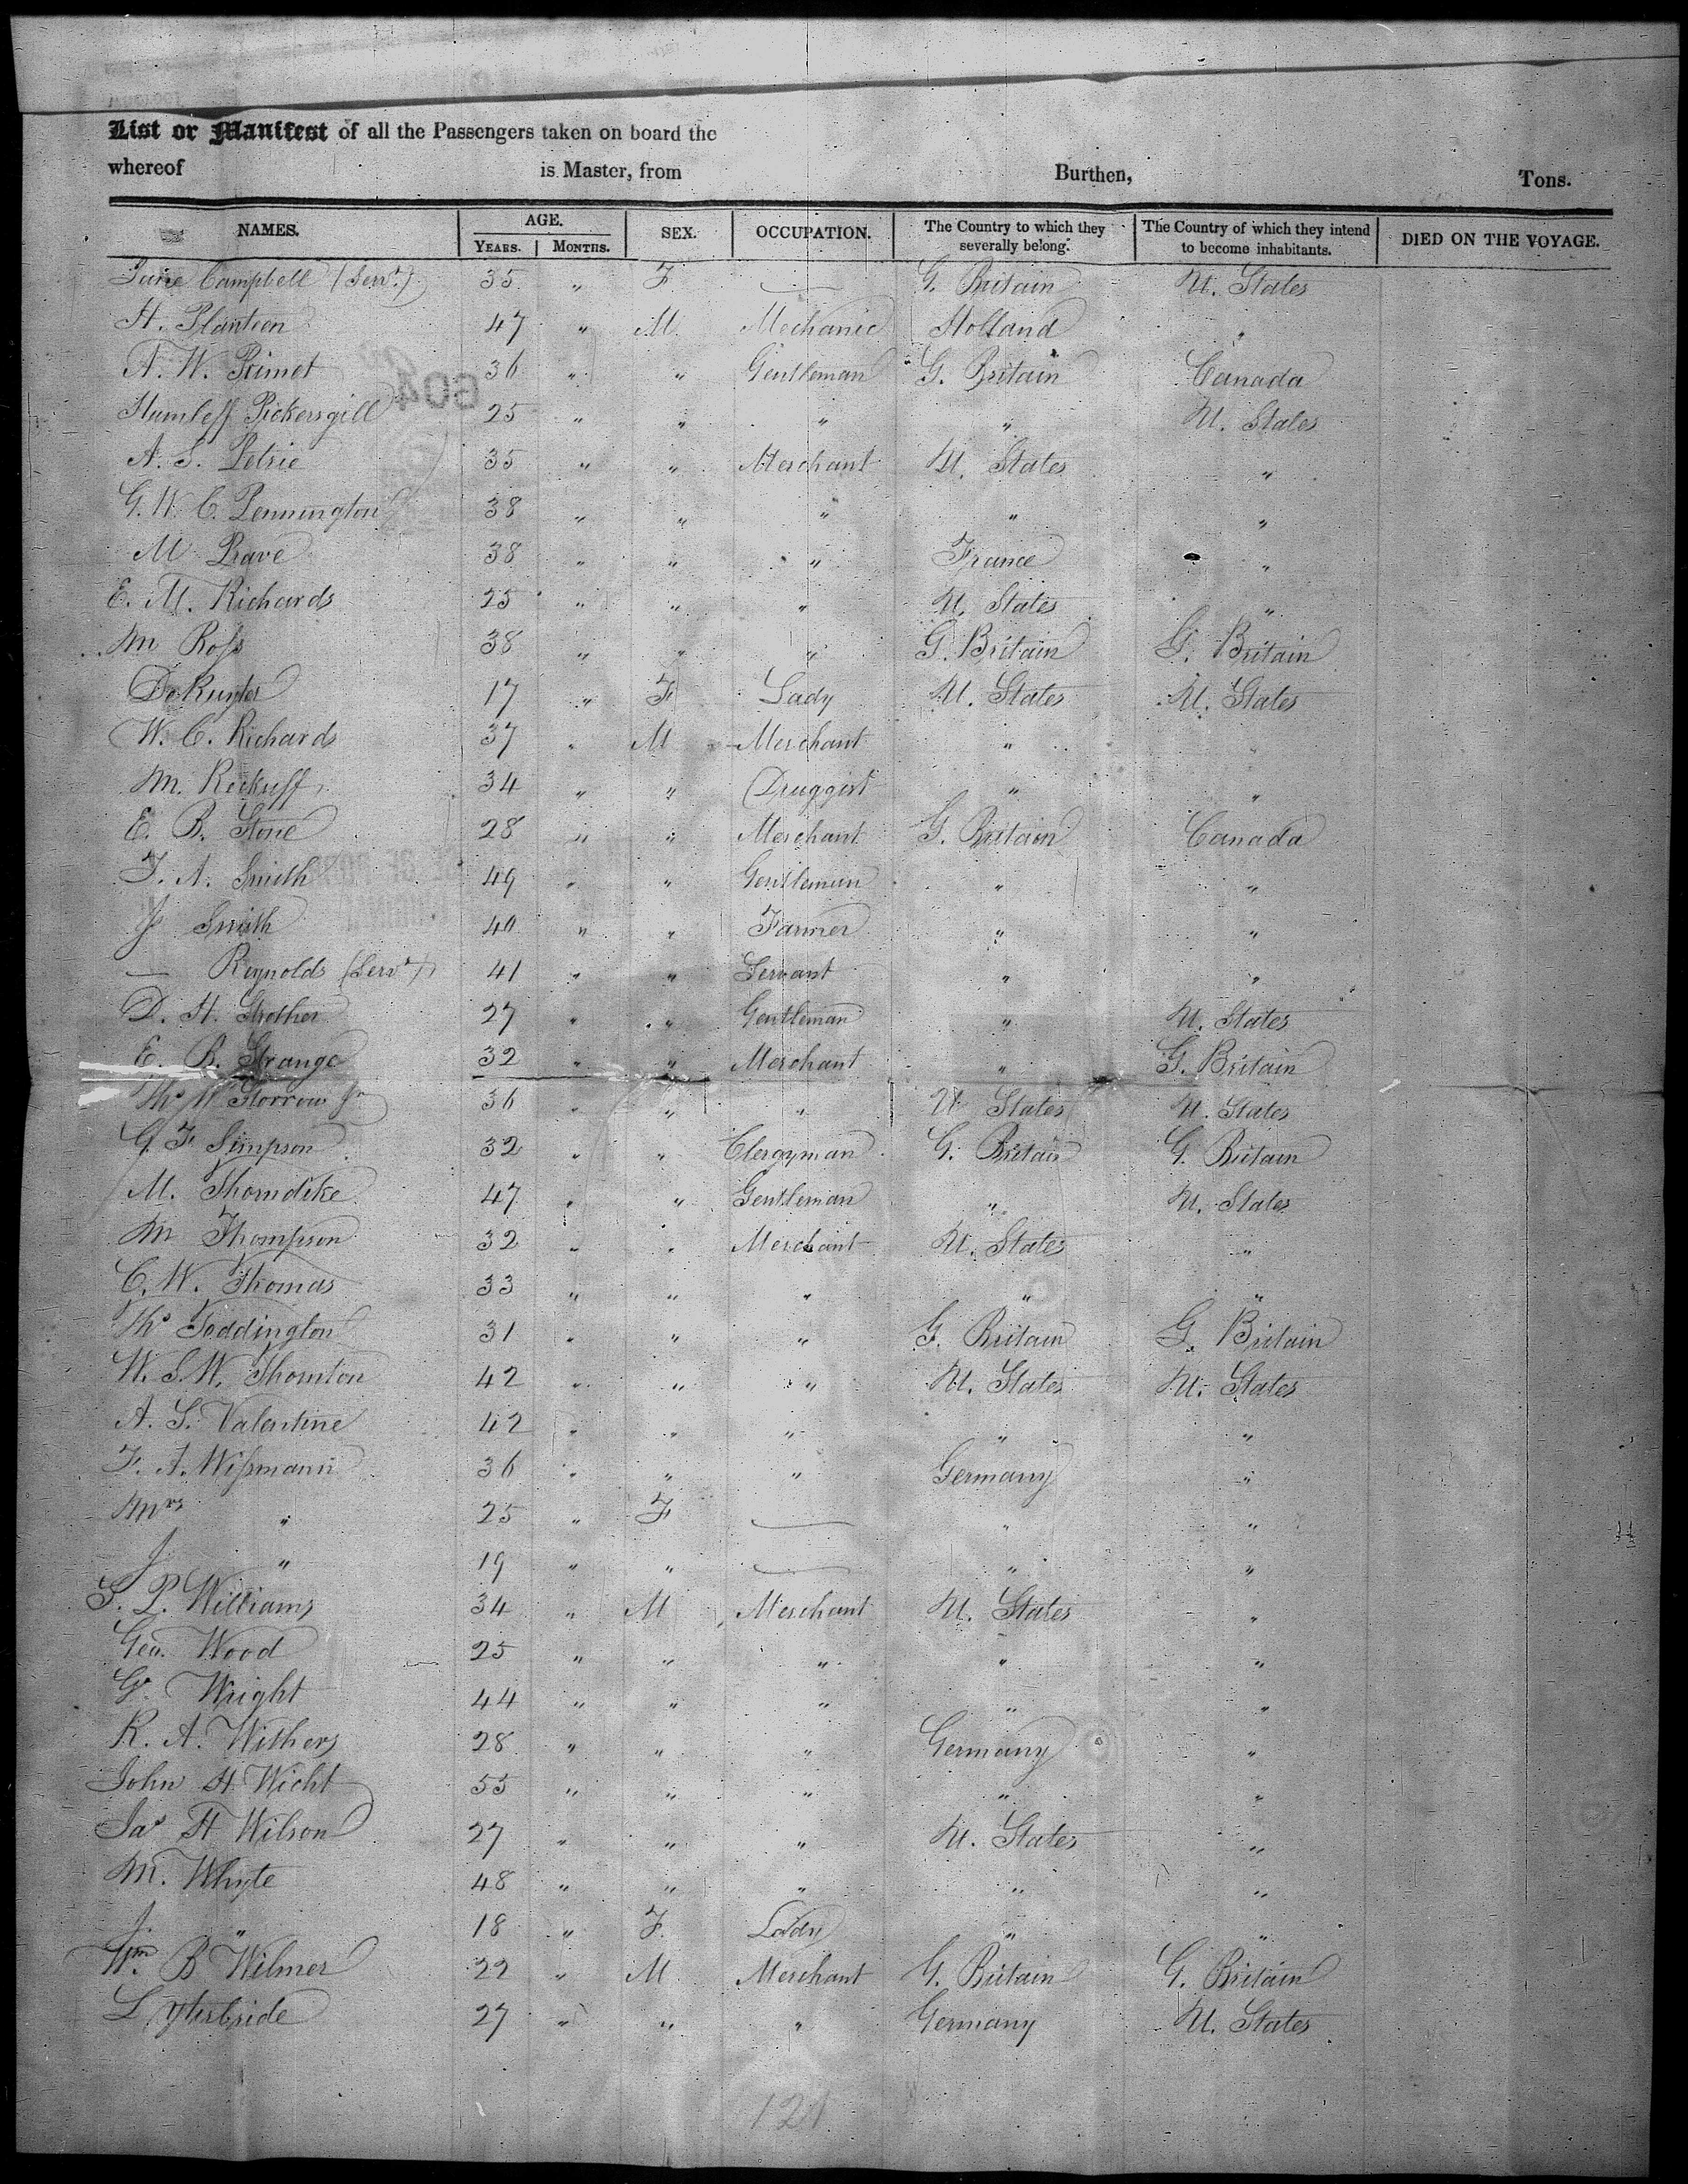 List or Manifest of all the Passengers taken on board the
whereof is Master, from Burthen, Tons.
NAMES. AGE. YEARS. MONTHS. SEX. OCCUPATION. The Country to which they severally belong. The Country of which they intend to become inhabitants. DIED ON THE VOYAGE.
Campbell (Servt.) 35 " F — G. Britain U. States
H. Planteen 47 " M Mechanic Holland "
A. W. Primet 36 " " Gentleman G. Britain Canada
Pickersgill 25 " " " " U. States
A. S. Petrie 35 " " Merchant U. States "
G. W. C. Pennington 38 " " " " "
M Prave 38 " " " France "
E. M. Richards 25 " " " U. States "
M Ross 38 " " " G. Britain G. Britain
DeRuyter 17 " F Lady U. States U. States
W. C. Richards 37 " M Merchant " "
M. 34 " " Druggist " "
E. B. Stone 28 " " Merchant G. Britain Canada
F. A. Smith 49 " " Gentleman " "
J Smith 40 " " Farmer " "
— Reynolds (Servt) 41 " " Servant " "
D. H. Strother 27 " " Gentleman " U. States
E. B. Strange 32 " " Merchant " G. Britain
Ths W Storrow Jr 36 " " " U States U. States
G. F. Simpson 32 " " Clergyman G. Britain G. Britain
M. Thorndike 47 " " Gentleman " U. States
M Thompson 32 " " Merchant U. States "
C. W. Thomas 33 " " " " "
Ths Toddington 31 " " " G. Britain G. Britain
W. S. W. Thornton 42 " " " U. States U. States
A. S. Valentine 42 " " " " "
F. A. Wissmann 36 " " " Germany "
Mrs " 25 " F — " "
J. " 19 " " — " "
S. P. Williams 34 " M Merchant U. States "
Geo. Wood 25 " " " " "
G. Wright 44 " " " " "
R. A. Withers 28 " " " Germany "
John H Wicht 55 " " " " "
Jas H Wilson 27 " " " U. States "
M. Whyte 48 " " " " "
J. " 18 " F. Lady " "
Wm. B Wilmer 22 " M Merchant G. Britain G. Britain
L 27 " " " Germany U. States
121